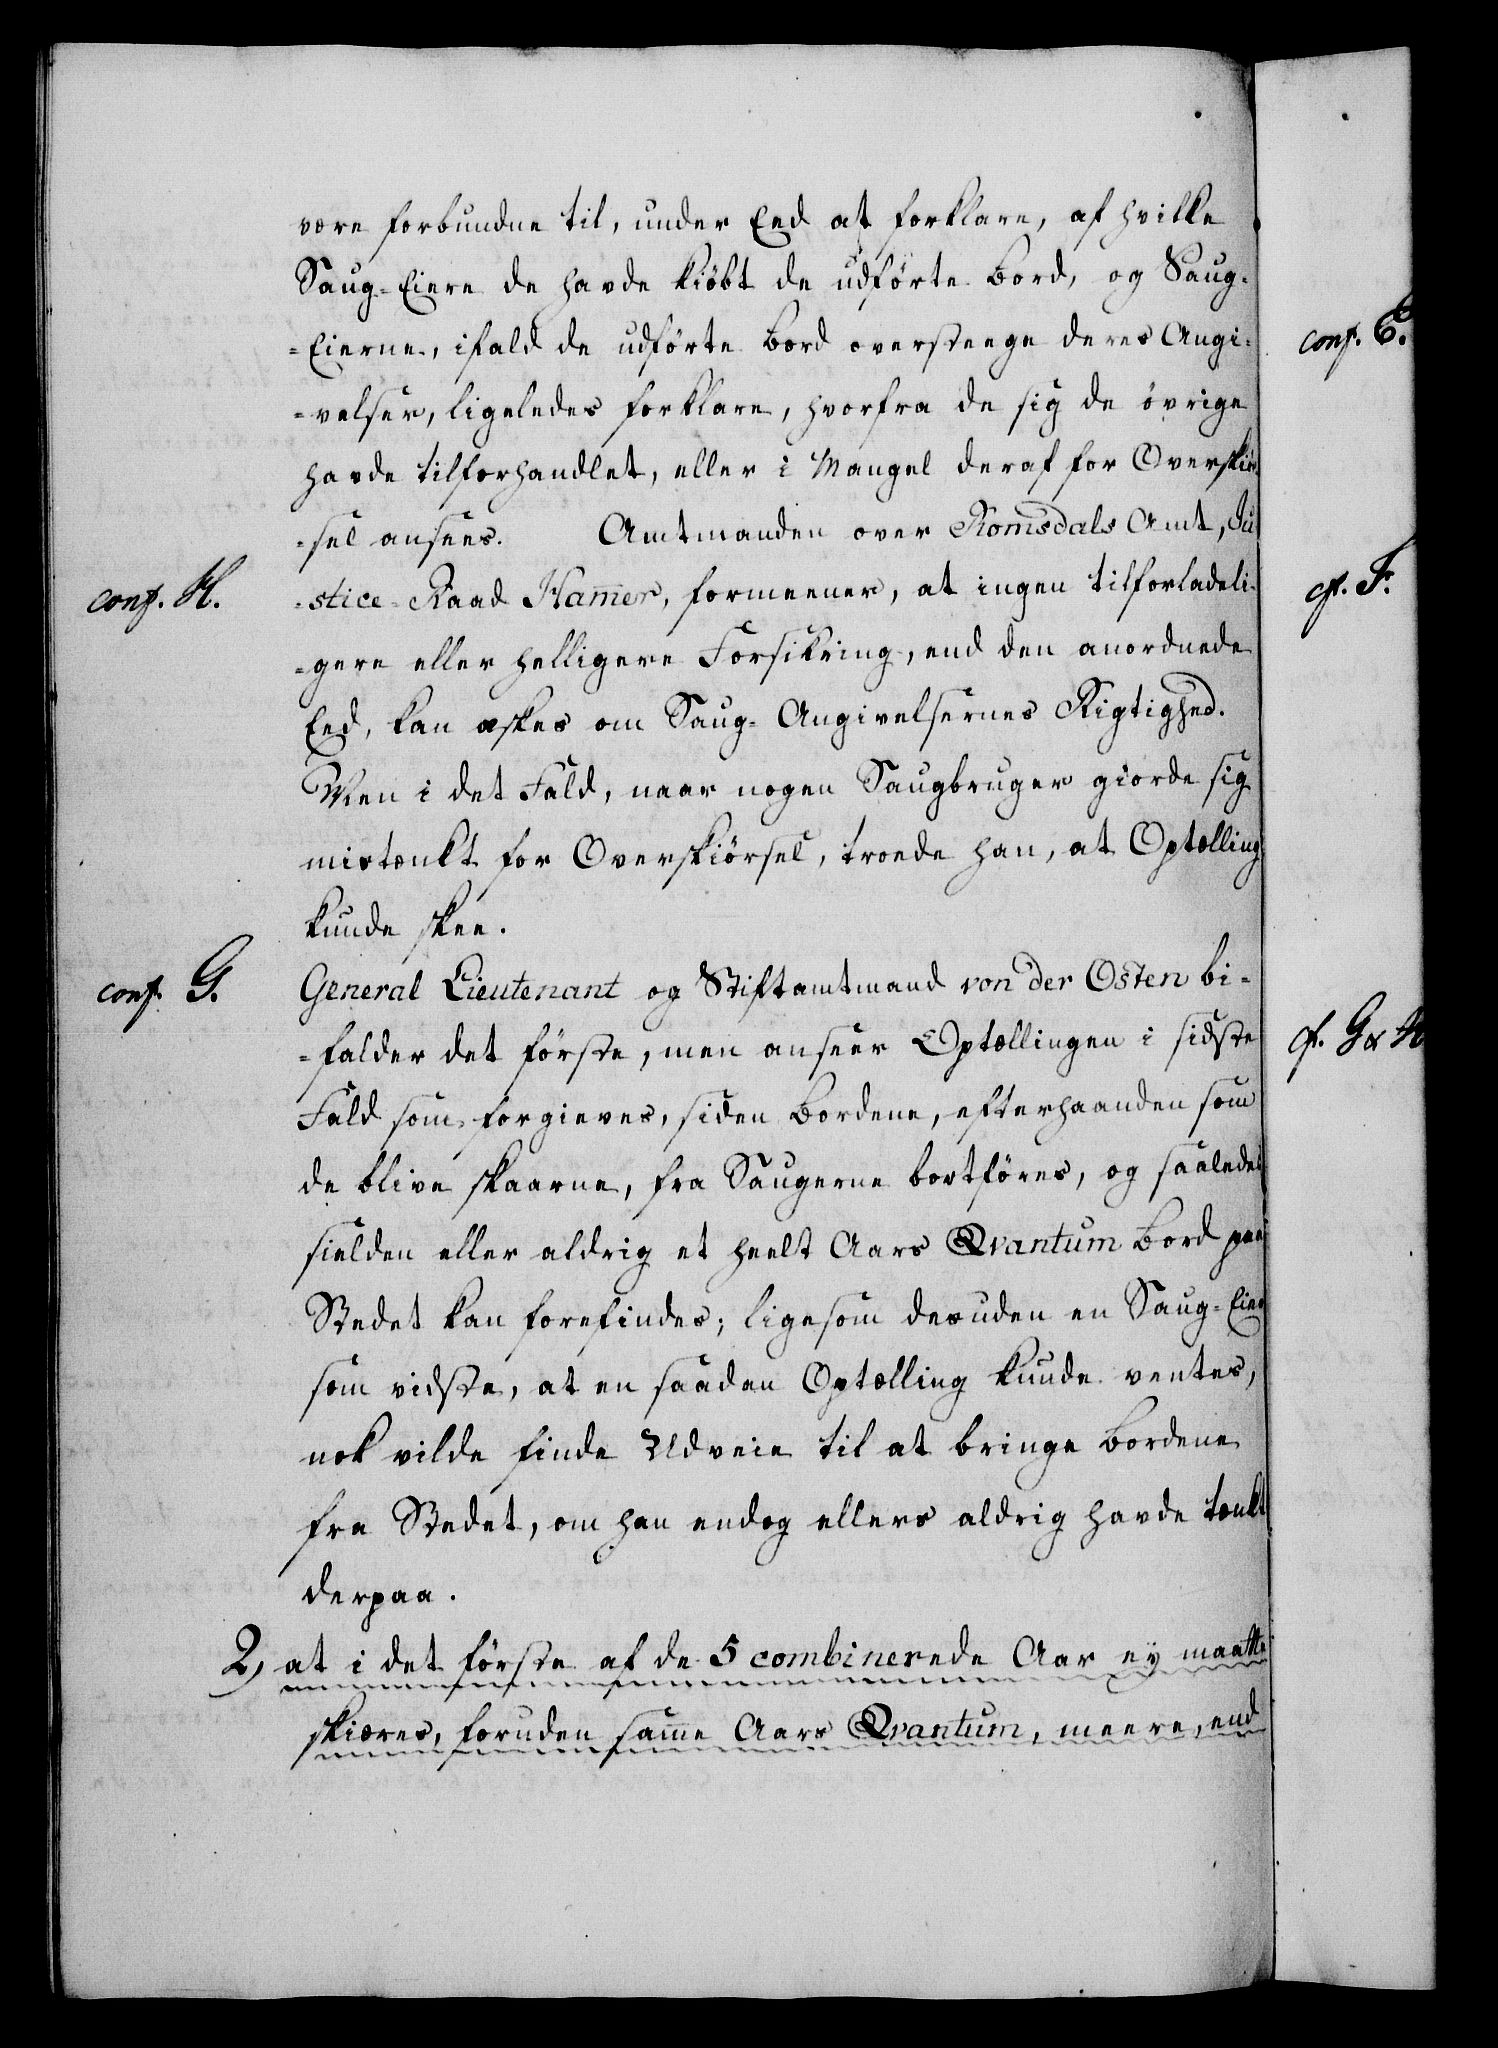 være forbundne til, under Eed at forklare, af hvilke
Saug-Eiere de havde kiöbt de udförte Bord, og Saug-
-Eierne, ifald de udförte Bord oversteege deres Angi-
-velser, ligeledes forklare, hvorfra de sig de övrige
havde tilforhandlet, eller i Mangel deraf for Overskiör
-sel ansees. Amtmanden over Romsdals Amt, Ju
conf. H. -stice-Raad Ham̅er, formeener, at ingen tilforladeli-
-gere eller helligere Forsikring, end den anordnede
Eed, kan æskes om Saug-Angivelsernes Rigtighed.
Men i det Fald, naar nogen Saugbruger giorde sig
mistænkt for Overskiörsel, troede han, at Optælling
kunde skee.
conf. G. General Lieutenant og Stiftamtmand von der Osten bi-
-falder det förste, men anseer Optællingen i sidste
Fald som forgieves, siden Bordene, efterhaanden som
de blive skaarne, fra Saugerne bortföres, og saaledes
sielden eller aldrig et heelt Aars Qvantum Bord paa
Stedet kan forefindes; ligesom desuden en Saug-Eier
som vidste, at en saadan Optælling kunde ventes,
nok vilde finde Udveie til at bringe Bordene
fra Stedet, om han endog ellers aldrig havde tænkt
derpaa.
2, at i det förste af de 5 combinerede Aar ey maatte
skiæres, foruden sam̅e Aars Qvantum, meere, end
conf. E.
cf. F.
cf. G & H